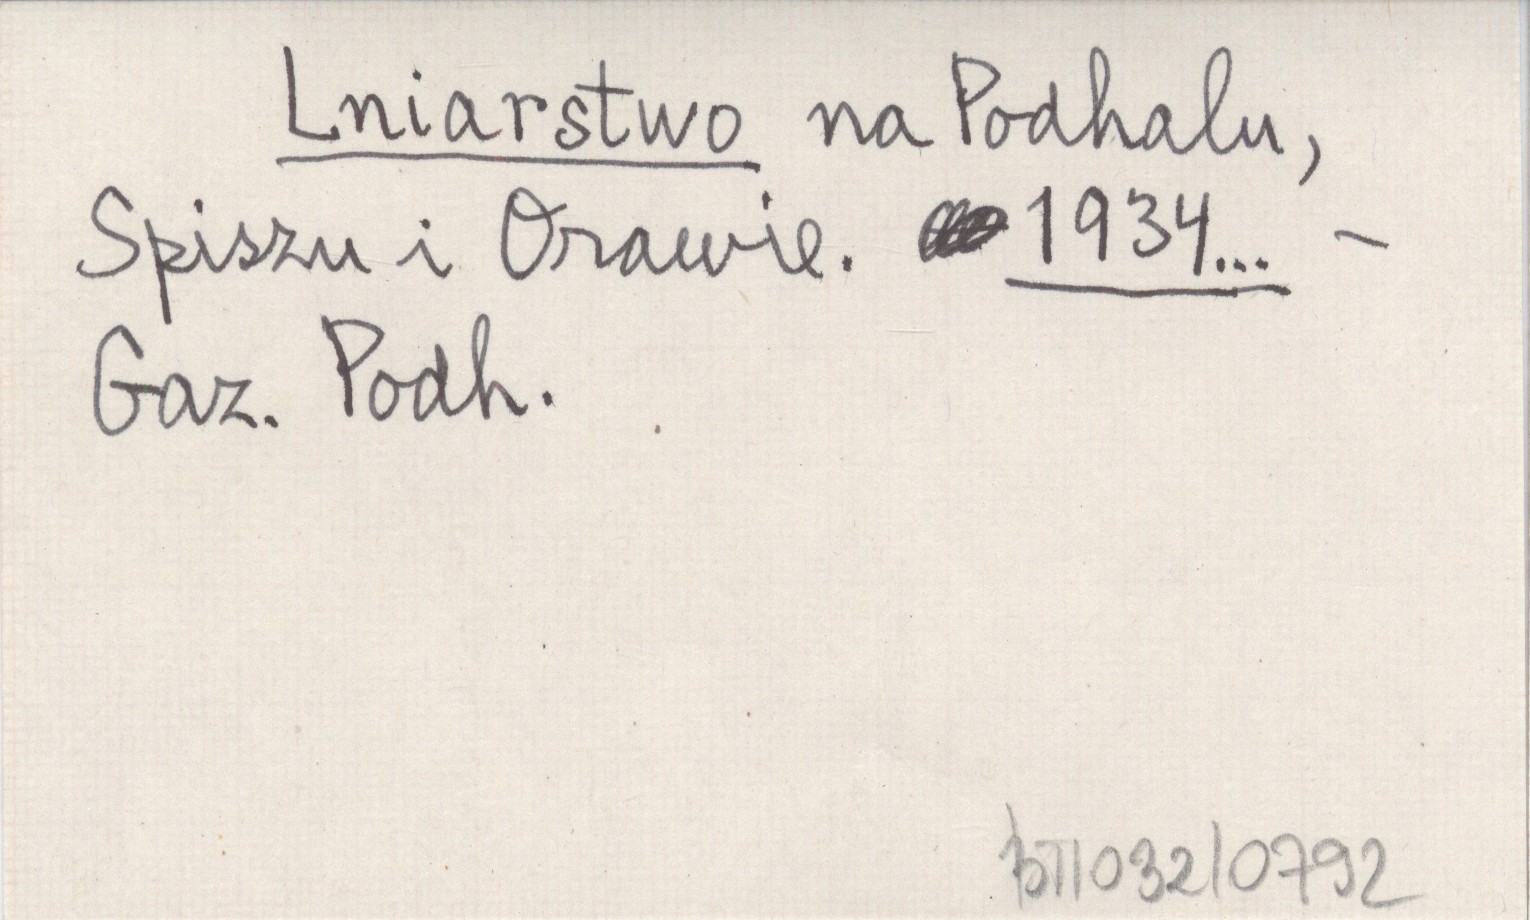 Lniarstwo na Podhalu,
Spiszu i Orawie. 1934... –
Gaz. Podh.
BT/032/0792